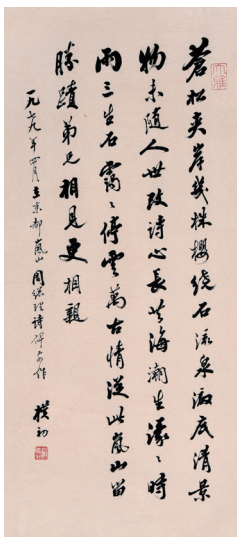 蒼松夾岸幾株櫻繞石流泉澈底清景
物未隨人世改詩心長共海潮生濛〻時
雨三生石靄〻停雲萬古情從此嵐山留
勝蹟弟兄相見更相親
一九七九年四月在京都嵐山周總理詩碑前作 樸初